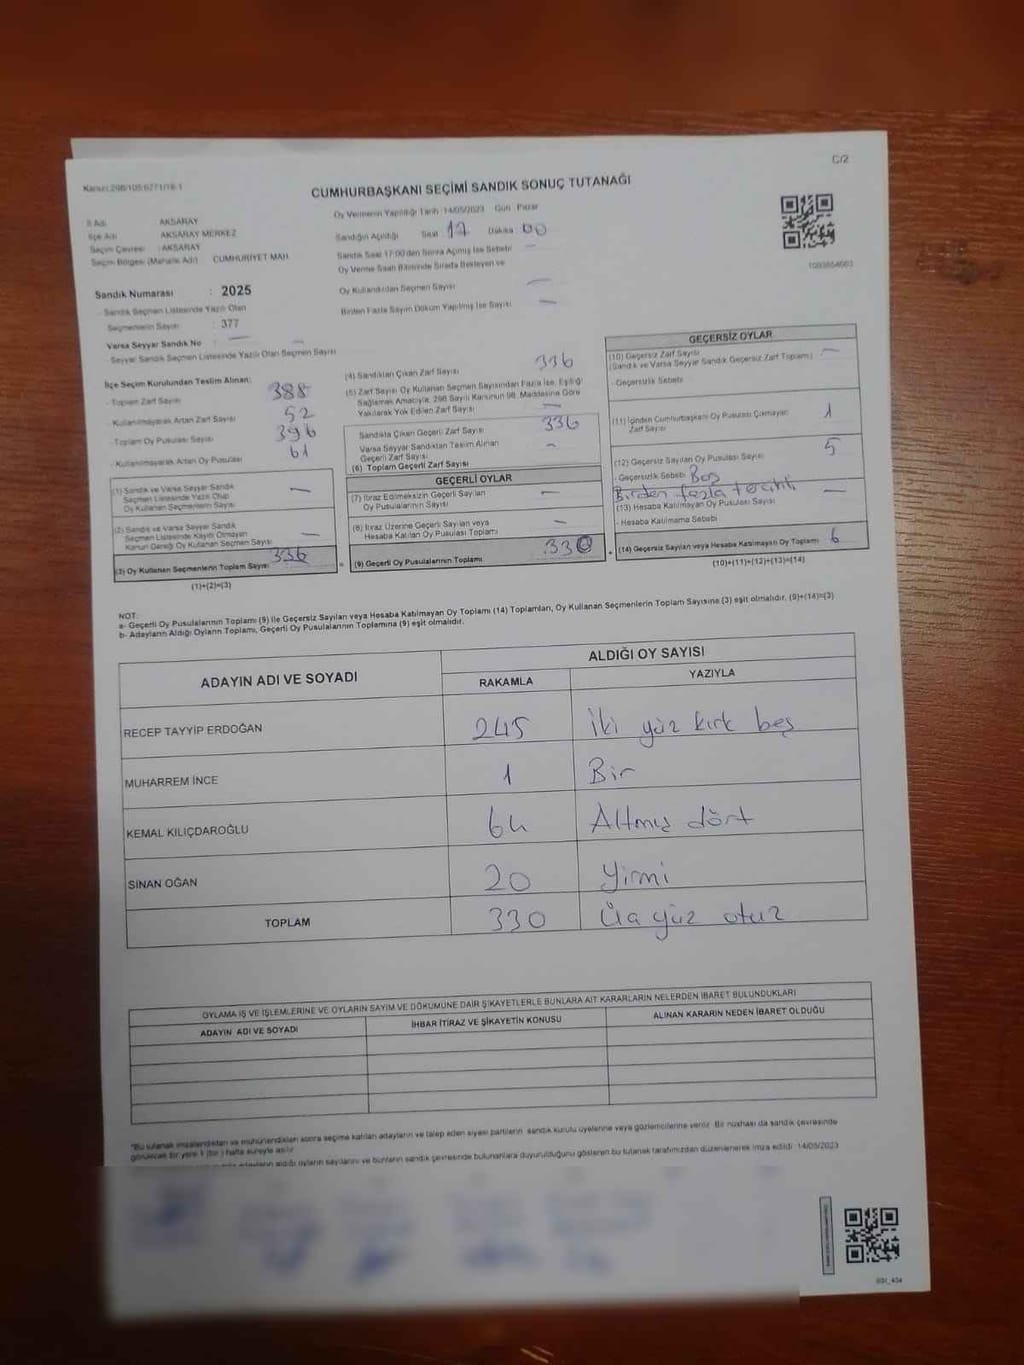 Kanun:298/105;6271/18-1
C/2
CUMHURBAŞKANI SEÇİMİ SANDIK SONUÇ TUTANAĞI
İl Adı : AKSARAY
İlçe Adı : AKSARAY MERKEZ
Seçim Çevresi : AKSARAY
Seçim Bölgesi (Mahalle Adı) CUMHURİYET MAH.
Sandık Numarası : 2025
- Sandık Seçmen Listesinde Yazılı Olan
Seçmenlerin Sayısı : 377
Varsa Seyyar Sandık No : —
- Seyyar Sandık Seçmen Listesinde Yazılı Olan Seçmen Sayısı —
Oy Vermenin Yapıldığı Tarih :14/05/2023 Gün : Pazar
Sandığın Açıldığı Saat 17 Dakika 00
Sandık Saat 17:00'den Sonra Açılmış İse Sebebi —
Oy Verme Saati Bitiminde Sırada Bekleyen ve
Oy Kullandırılan Seçmen Sayısı —
Birden Fazla Sayım Döküm Yapılmış İse Sayısı —
İlçe Seçim Kurulundan Teslim Alınan:
- Toplam Zarf Sayısı 388
- Kullanılmayarak Artan Zarf Sayısı 52
- Toplam Oy Pusulası Sayısı 396
- Kullanılmayarak Artan Oy Pusulası 61
(1) Sandık ve Varsa Seyyar Sandık
Seçmen Listesinde Yazılı Olup
Oy Kullanan Seçmenlerin Sayısı —
(2) Sandık ve Varsa Seyyar Sandık
Seçmen Listesinde Kaydı Olmayan
Kanun Gereği Oy Kullanan Seçmen Sayısı —
(3) Oy Kullanan Seçmenlerin Toplam Sayısı 336
(1)+(2)=(3)
(4) Sandıktan Çıkan Zarf Sayısı 336
(5) Zarf Sayısı Oy Kullanan Seçmen Sayısından Fazla İse, Eşitliği
Sağlamak Amacıyla, 298 Sayılı Kanunun 98. Maddesine Göre
Yakılarak Yok Edilen Zarf Sayısı —
Sandıkta Çıkan Geçerli Zarf Sayısı 336
Varsa Seyyar Sandıktan Teslim Alınan
Geçerli Zarf Sayısı —
(6) Toplam Geçerli Zarf Sayısı
GEÇERLİ OYLAR
(7) İtiraz Edilmeksizin Geçerli Sayılan
Oy Pusulalarının Sayısı —
(8) İtiraz Üzerine Geçerli Sayılan veya
Hesaba Katılan Oy Pusulası Toplamı —
(9) Geçerli Oy Pusulalarının Toplamı 330
GEÇERSİZ OYLAR
(10) Geçersiz Zarf Sayısı
(Sandık ve Varsa Seyyar Sandık Geçersiz Zarf Toplamı) —
- Geçersizlik Sebebi
(11) İçinden Cumhurbaşkanı Oy Pusulası Çıkmayan
Zarf Sayısı 1
(12) Geçersiz Sayılan Oy Pusulası Sayısı 5
- Geçersizlik Sebebi Boş
Birden fazla tercihli
(13) Hesaba Katılmayan Oy Pusulası Sayısı —
- Hesaba Katılmama Sebebi
(14) Geçersiz Sayılan veya Hesaba Katılmayan Oy Toplamı 6
(10)+(11)+(12)+(13)=(14)
NOT:
a- Geçerli Oy Pusulalarının Toplamı (9) ile Geçersiz Sayılan veya Hesaba Katılmayan Oy Toplamı (14) Toplamları, Oy Kullanan Seçmenlerin Toplam Sayısına (3) eşit olmalıdır. (9)+(14)=(3)
b- Adayların Aldığı Oyların Toplamı, Geçerli Oy Pusulalarının Toplamına (9) eşit olmalıdır.
ADAYIN ADI VE SOYADI
ALDIĞI OY SAYISI
RAKAMLA YAZIYLA
RECEP TAYYİP ERDOĞAN 245 İki yüz kırk beş
MUHARREM İNCE 1 Bir
KEMAL KILIÇDAROĞLU 64 Altmış dört
SİNAN OĞAN 20 Yirmi
TOPLAM 330 Üç yüz otuz
OYLAMA İŞ VE İŞLEMLERİNE VE OYLARIN SAYIM VE DÖKÜMÜNE DAİR ŞİKAYETLERLE BUNLARA AİT KARARLARIN NELERDEN İBARET BULUNDUKLARI
ADAYIN ADI VE SOYADI İHBAR İTİRAZ VE ŞİKAYETİN KONUSU ALINAN KARARIN NEDEN İBARET OLDUĞU
*Bu tutanak imzalandıktan ve mühürlendikten sonra seçime katılan adayların ve talep eden siyasi partilerin sandık kurulu üyelerine veya gözlemcilerine verilir. Bir nüshası da sandık çevresinde
görülecek bir yere 1 (bir) hafta süreyle asılır.
adayların aldığı oyların sayılarını ve bunların sandık çevresinde bulunanlara duyurulduğunu gösteren bu tutanak tarafımızdan düzenlenerek imza edildi. 14/05/2023